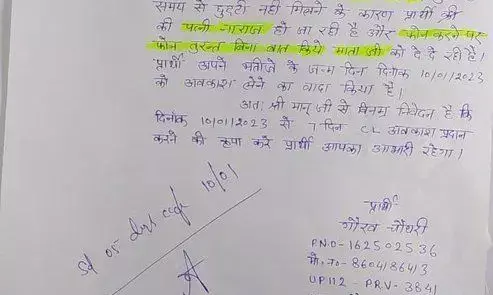 समय से छुट्टी नहीं मिलने के कारण प्रार्थी की
की पत्नी नाराज हो जा रही है और फोन करने पर
फोन तुरन्त बिना बात किये माता जी को दे दे रही है।
प्रार्थी अपने भतीजे के जन्म दिन दिनांक 10/01/2023
को अवकाश लेने का वादा किया है।
अतः श्री मान् जी से विनम्र निवेदन है कि
दिनांक 10/01/2023 से 7 दिन CL अवकाश प्रदान
करने की कृपा करे प्रार्थी आपका आभारी रहेगा।
10/01
प्रार्थी
गौरव चौधरी
P.N.O- 162502536
मो. नo- 8604186413
UP112 - PRV- 3841